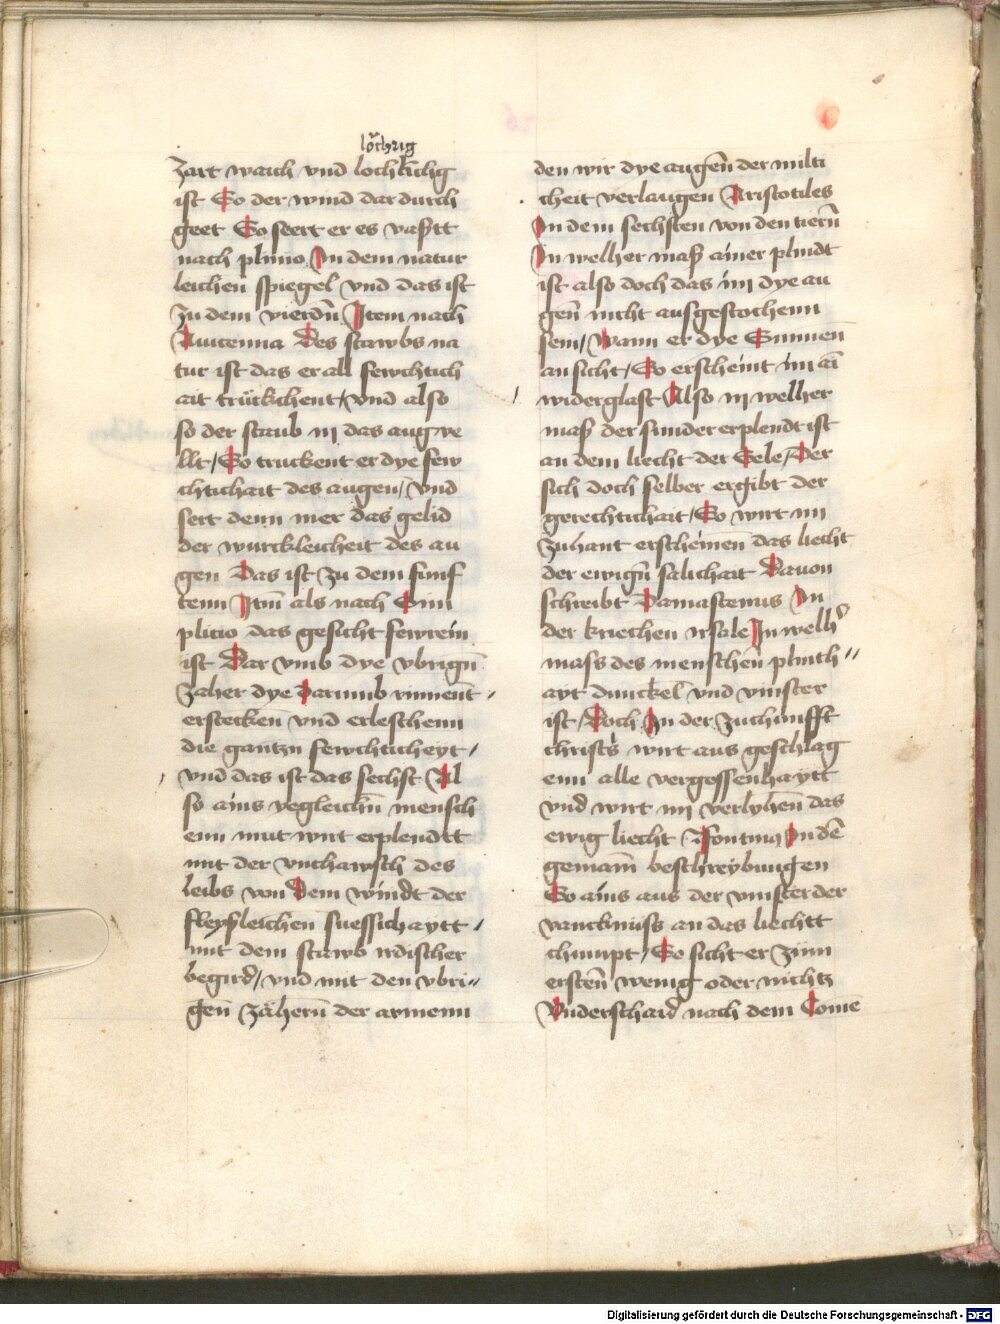 löchrig
zart waich vnd lochlichg
ist So der wind dar durch
geet So seert er es vasstt
nach plinio In dem natur
leichen spiegel vnd das ist
zu dem vierdñ Item nach
Auicenna Des stawbs na
tur ist das er all fewchtich
ait trückchent / vnd also
so der staub in das aug ve
llt / So truckent er dye few
chtichait des augen / vnd
sert denn mer das gelid
der wurckleicheit des au
gen Das ist zu dem funf
tenn Itm̄ als nach Sim
plicio das gesicht fewrein
ist Dar vmb dye vbrigñ
zäher dye darumb rinnent
erstecken vnd erleschenn
die gantzn fewchticheyt /
vnd das ist das sechst Al
so ains yegleichn̄ mensch
enn mut wirt erplendtt
mit der vnchawsch des
leibs von dem windt der
fleyschleichen suessichaytt /
mit dem stawb irdischer
begird / vnd mit den vbri〃
gen̄ zähern̄ der armenn
den wir dye augen̄ der milti
cheit verlaugen Aristotiles
In dem sechsten von den tiern̄
In welher mass ainer plindt
ist also doch das im dye au
gen̄ nicht ausgestochenn
sein / Wann er dye Sunnen
an sicht / So erscheint im ai
widerglast Also in welher
mass der sunder erplendt ist
an dem liecht der Sele / Der
sich doch selber ergibt der
gerechtichait / So wirt im
zuhant erscheinen das liecht
der ewign̄ salichait Dauon
schreibt Damascenus In
der kriechen Insale In welh
mass des menschen plinth〃
ayt dunckel vnd vinster
ist / Doch In der zuchunfft
christs wirt aus geschlag
enn alle vergessenhaytt
vnd wirt im verlyhen das
ewig liecht Fontina In de
gemain beschreybungen
So ains aus der vinster der
vancknuss an das liechtt
chumpt / So sicht er zum
ersten wenig oder nichtz
Vnderschaid nach dem Come
Digitalisierung gefördert durch die Deutsche Forschungsgemeinschaft - DFG